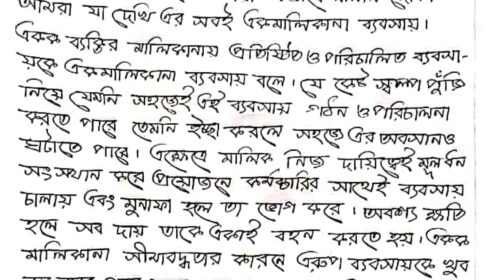 আমরা যা দেখি এর সবই একমালিকানা ব্যবসায়।
একক ব্যক্তির মালিকানায় প্রতিষ্ঠিত ও পরিচালিত ব্যবসা-
য়কে একমালিকানা ব্যবসায় বলে। যে কেউ স্বল্প পুঁজি
নিয়ে যেমনি সহজেই এই ব্যবসায় গঠন ও পরিচালনা
করতে পারে তেমনি ইচ্ছা করলে সহজে এর অবসানও
ঘটাতে পারে। এক্ষেত্রে মালিক নিজ দায়িত্বেই মূলধন
সংস্থান করে প্রয়োজনে কর্মচারির সাথেই ব্যবসায়
চালায় এবং মুনাফা হলে তা ভোগ করে। অবশ্য ক্ষতি
হলে সব দায় তাকে একাই বহন করতে হয়। একক
মালিকানা সীমাবদ্ধতার কারনে এরূপ ব্যবসায়কে খুব